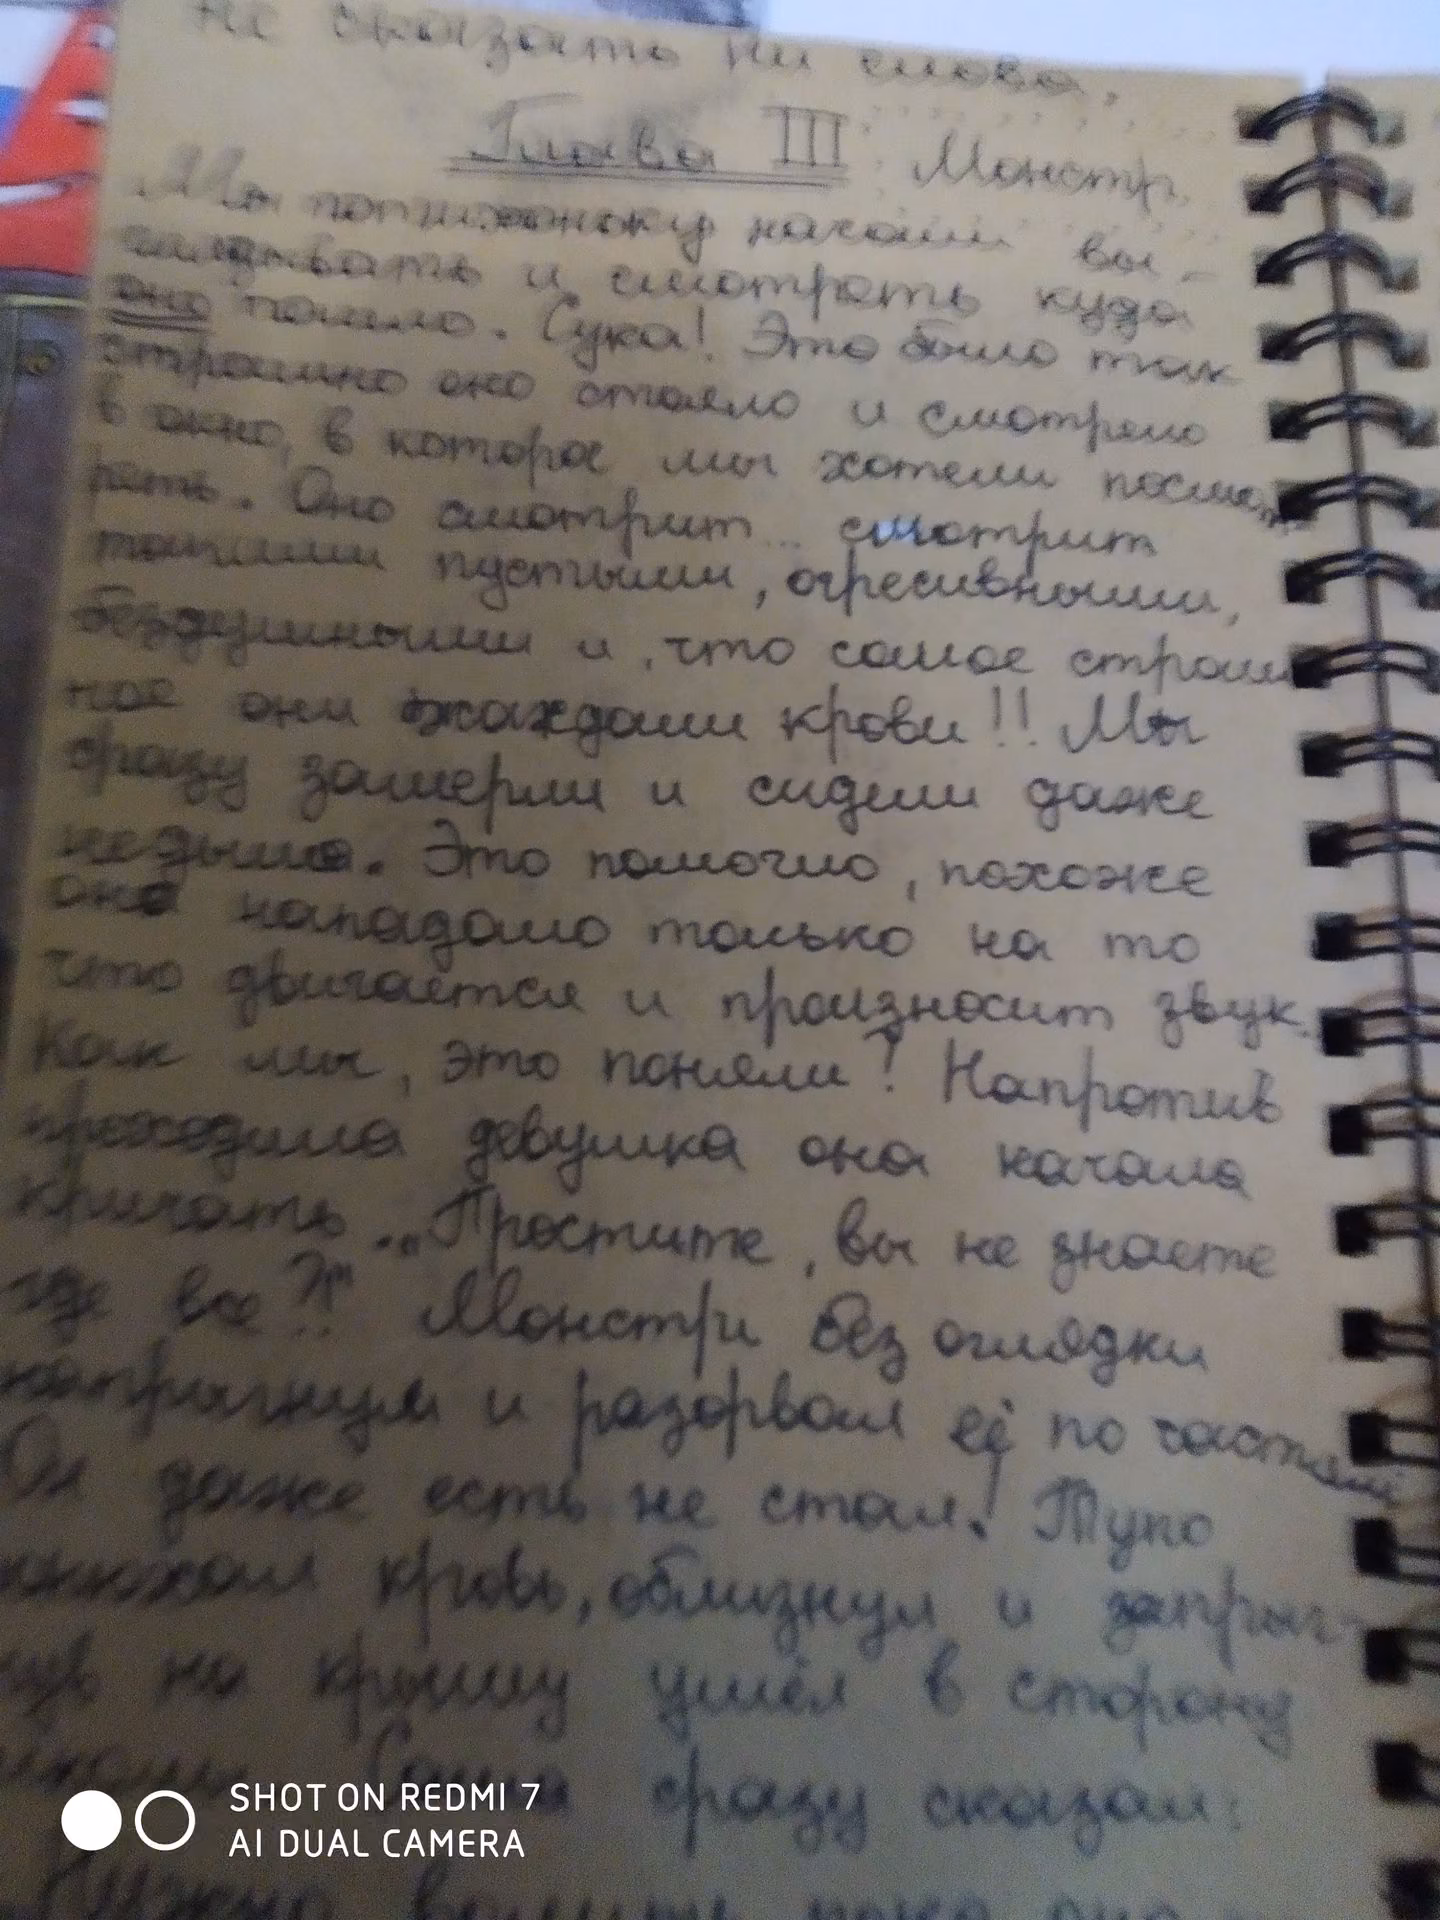 не сказать ни слова.
Глава III Монстр.
Мы потихоньку начали вы-
глядывать и смотреть куда
оно пошло. Сука! Это было так
страшно оно стояло и смотрело
в окно, в которое мы хотели посмот-
реть. Оно смотрит... смотрит
такими пустыми, агресивными,
бездушными и, что самое страш
ное они жаждали крови!! Мы
сразу замерли и сидели даже
не дыша. Это помогло, похоже
оно нападало только на то
что двигается и произносит звук.
Как мы, это поняли? Напротив
проходила девушка она начала
кричать. „Простите, вы не знаете
где все?" Монстр без оглядки
напрыгнул и разорвал её по частям
Он даже есть не стал! Тупо
кровь, облизнул и запрыг-
нув на крышу ушёл в сторону
Саша сразу сказал:
Нужно пока оно
SHOT ON REDMI 7
AI DUAL CAMERA